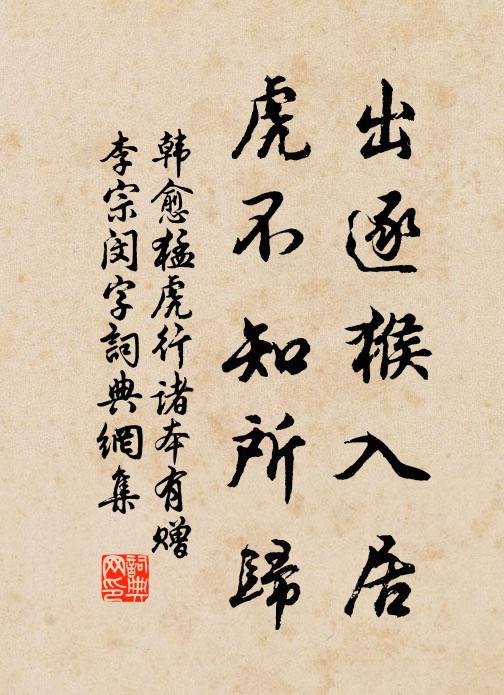 出逐猴入居
虎不知所歸
韩愈猛虎行诸本有赠
李宗闵字詞典網集
詞典网印